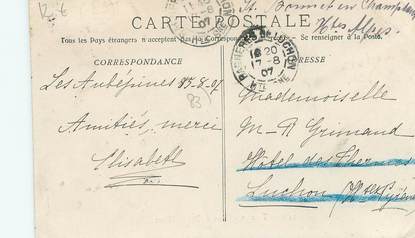 St Bonnet en Champsaur
Htes Alpes
CARTE POSTALE
Tous les Pays étrangers n'acceptent pas la Correspondance Se renseigner à la Poste.
CORRESPONDANCE
ADRESSE
BGNERES DE LUCHON
18 20
17-8
07
HTE
Les Aubépines 15-8-07
Amitiés, merci
Elisabeth
83
Mademoiselle
M-R Grimaud
Hôtel des Thermes
Luchon (Htes Pyrén